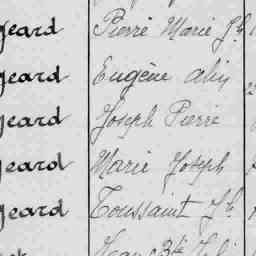 geard Pierre Marie Jh
geard Eugène
geard Joseph Pierre
geard Marie Joseph
geard Toussaint Jh
Jean Bte